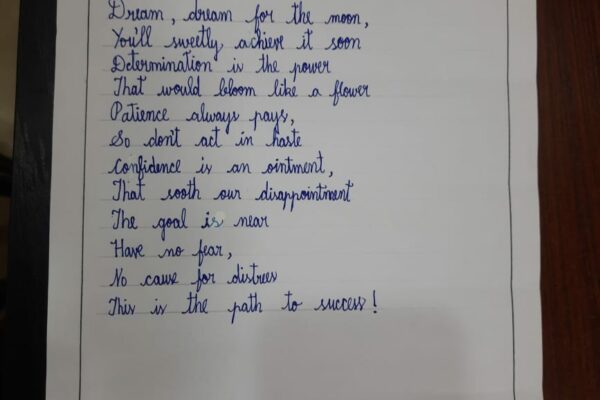 Dream, dream for the moon,
You'll sweetly achieve it soon
Determination is the power
That would bloom like a flower
Patience always pays,
So don't act in haste
Confidence is an ointment,
That sooth our disappointment
The goal is near
Have no fear,
No cause for distrees
This is the path to success!